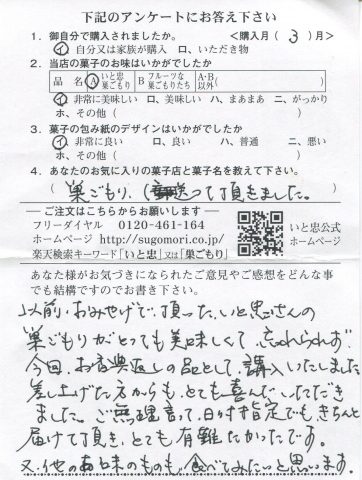 下記のアンケートにお答え下さい
1. 御自分で購入されましたか。 <購入月( 3 )月>
イ 自分又は家族が購入 ロ、いただき物
2. 当店の菓子のお味はいかがでしたか
品 名 A いと忠巣ごもり B フルーツな巣ごもりたち A・B以外( )
イ 非常に美味しい ロ、美味しい ハ、まあまあ ニ、がっかり
ホ、その他( )
3. 菓子の包み紙のデザインはいかがでしたか
イ 非常に良い ロ、良い ハ、普通 ニ、悪い
ホ、その他( )
4. あなたのお気に入りの菓子店と菓子名を教えて下さい。
( 巣ごもり、 送って頂きました。 )
― ご注文はこちらからお願いします ―
フリーダイヤル 0120-461-164
ホームページ http://sugomori.co.jp/
楽天検索キーワード「いと忠」又は「巣ごもり」
いと忠公式
ホームページ
あなた様がお気づきになられたご意見やご感想をどんな事
でも結構ですのでお書き下さい。
以前、おみやげで頂った、いと忠さんの
巣ごもりがとっても美味しくて、忘れられず
今回、お香典返しの品として、購入いたしました
差し上げた方からも、とても喜んでいただき
ました。ご無理言って、日付指定でも、きちんと
届けて頂き、とても有難たかったです。
又、他のお味のものも、食べてみたいと思います。